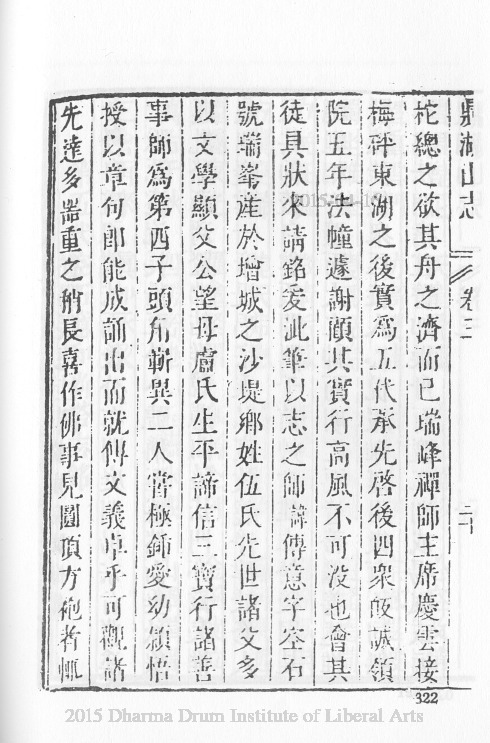 鼎湖山志 卷三 二十
柁總之欲其舟之濟而已瑞峰禪師主席慶雲接
梅砰東湖之後實為五代承先啓後四衆皈誠領
院五年法幢遽謝顧其實行高風不可没也會其
徒具狀來請銘爰泚筆以志之師諱傳意字空石
號瑞峯產於增城之沙堤鄉姓伍氏先世諸父多
以文學顯父公望母盧氏生平諦信三寶行諸善
事師為第四子頭角嶄異二人嘗極鍾愛幼穎悟
授以章句即能成誦出而就傅文義卓乎可觀諸
先達多器重之稍長喜作佛事見圓頂方袍者輒
322
2015 Dharma Drum Institute of Liberal Arts